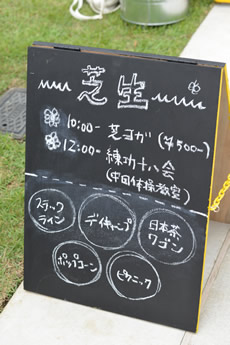 芝生
10:00- 芝ヨガ(¥500-)
12:00- 練功十八会
(中国体操教室)
スラックライン
デイキャンプ
日本茶ワゴン
ポップコーン
ピクニック